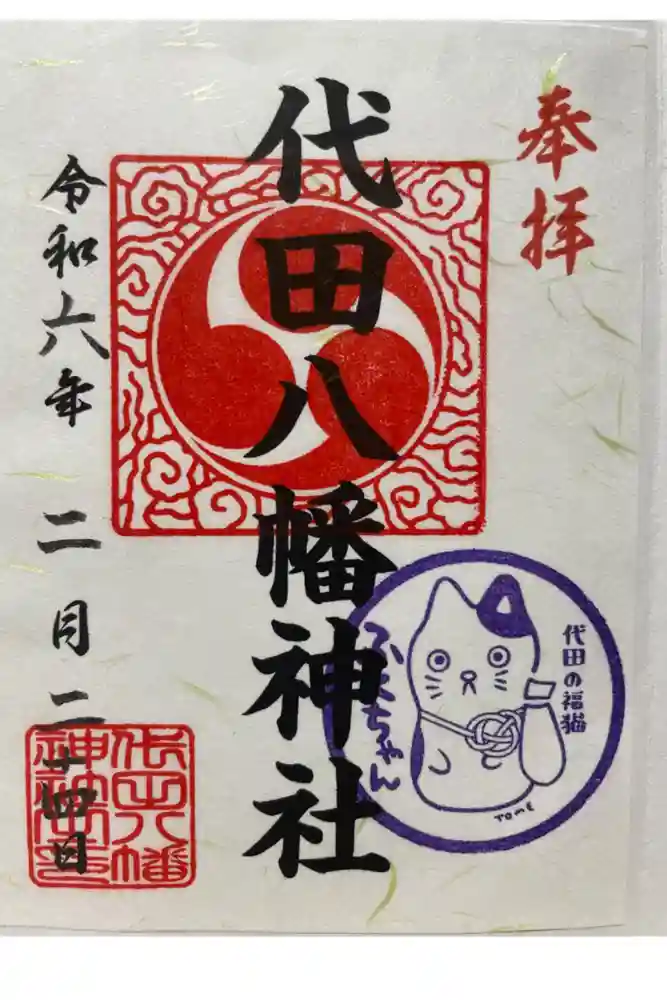 奉拝
代田八幡神社
令和六年 二月二十四日
代田の福猫
ふくちゃん
TOME